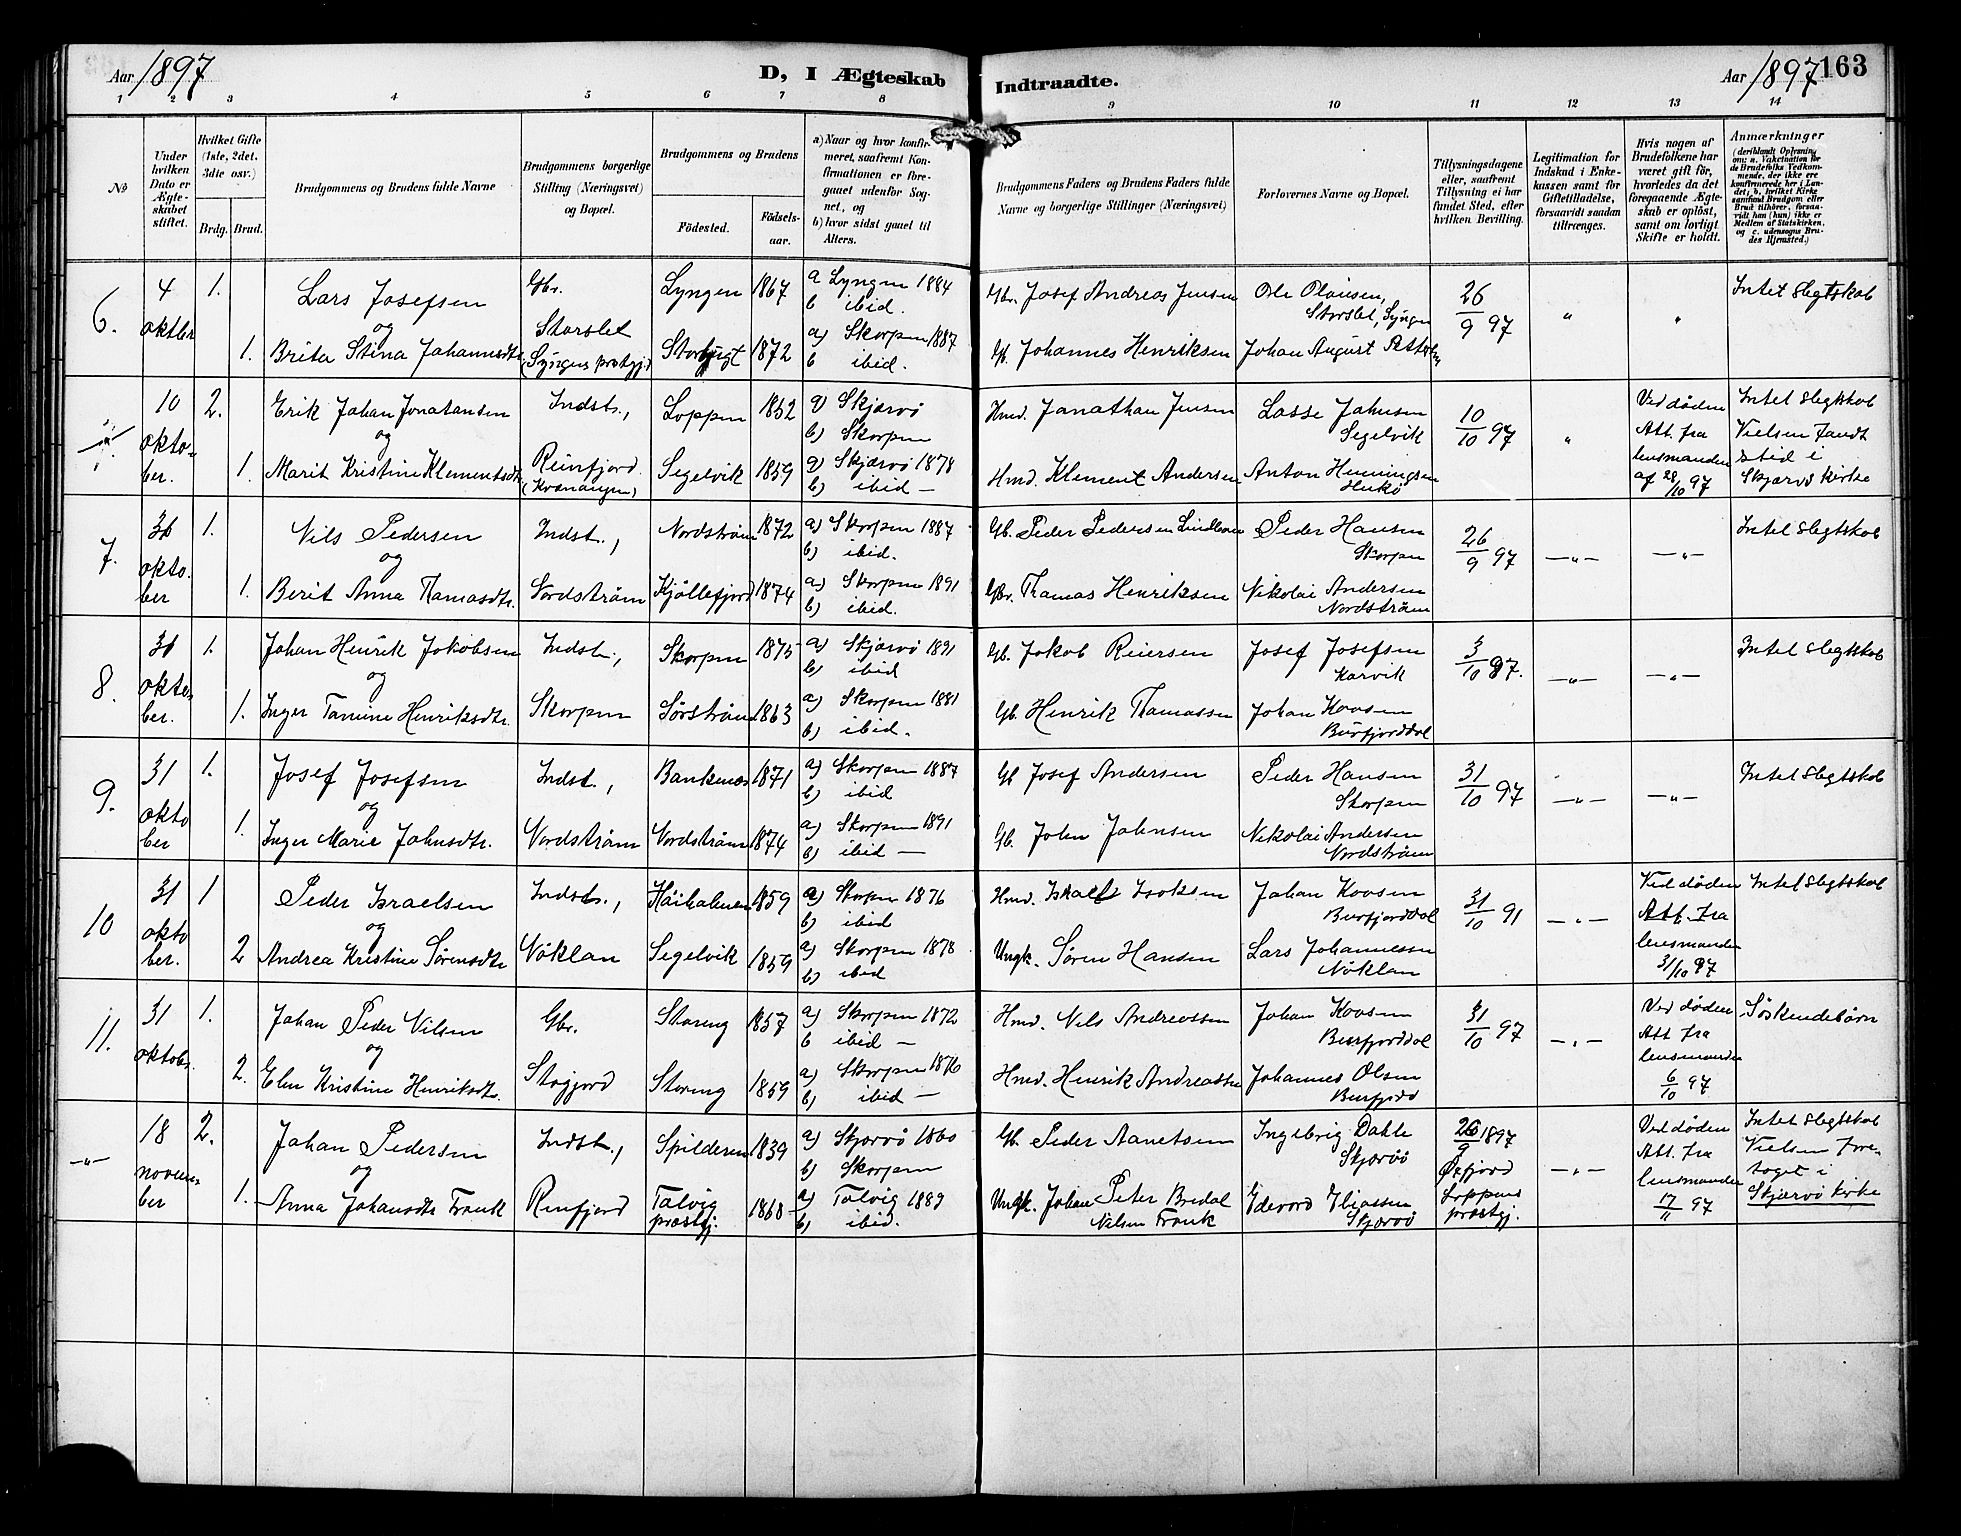 Aar 1897
D, I Ægteskab
Indtraadte.
Aar 1897
163
1 2 3 4 5 6 7 8 9 10 11 12 13 14
№
Under hvilken Dato er Ægteskabet stiftet.
Hvilket Gifte (1ste, 2det, 3die osv.)
Brdg. Brud.
Brudgommens og Brudens fulde Navne
Brudgommens borgerlige Stilling (Næringsvei) og Bopæl.
Brudgommens og Brudens
Fødested.
Fødselsaar.
a) Naar og hvor konfirmeret, saafremt Konfirmationen er foregaaet udenfor Sognet, og
b) hvor sidst gaaet til Alters.
Brudgommens Faders og Brudens Faders fulde Navne og borgerlige Stillinger (Næringsvei)
Forlovernes Navne og Bopæl.
Tillysningsdagene eller, saafremt Tillysning ei har fundet Sted, efter hvilken Bevilling.
Legitimation for Indskud i Enkekassen samt for Giftetilladelse, forsaavidt saadan tiltrænges.
Hvis nogen af Brudefolkene har været gift før, hvorledes da det foregaaende Ægteskab er opløst, samt om lovligt Skifte er holdt.
Anmærkninger
6. 4 oktber 1. Lars Josefsen Gbr. Lyngen 1867 a Lyngen 1884 b ibid. Gbr. Josef Andreas Jensen Ole Olausen, Storslet, Lyngen 26/9 97 " " Intet slegtskab
og
1. Brita Stina Johannesdtr. Storslet (Lyngens præstgj.) Storbugt 1872 a) Skorpen 1887 b ibid. Gb. Johannes Henriksen Johan August Pettersen
10 oktober. 2. Erik Johan Jonatansen Indst., Loppen 1852 a) Skjærvö b) Skorpen Hmd. Janathan Jensen Lasse Jahnsen Segelvik 10/10 97 " Ved døden Att. fra lensmanden af 28/10 97 Intet slegtskab Vielsen fandt sted i Skjærvö kirke
og
1. Marit Kristine Klementsdtr. Reinfjord. (Kvænangen) Segelvik 1859 a) Skjærvö 1878 b) ibid — Hmd. Klement Andersen Anton Henningsen
7. oktober 1. Nils Pedersen Indst., Nordströim 1872 a) Skorpen 1887 b) ibid. Gb. Peder Pedersen Peder Hansen Skorpen 26/9 97 —"— —"— Intet slegtskab
og
1. Berit Anna Thamasdtr. Kjöllefjord 1874 a) Skorpen 1891 b) ibid. Gbr. Thamas Henriksen Nikolai Andersen Nordströim
8. oktober. 1. Johan Henrik Jakobsen Indst., Skorpen 1875 a) Skjærvö 1891 b) ibid Gb. Jakob Reiersen Josef Josefsen Karvik 3/10 97. —"— —"— Intet slegtskab
og
1. Inger Tamine Henriksdtr. Skorpen Sörströim 1863 a) Skorpen 1881 b) ibid. Gb. Henrik Thamassen Johan Koosen Burfjorddal
9. 31 oktober 1. Josef Josefsen Indst., Bankenæs 1871 a) Skorpen 1887 b) ibid Gb Josef Andersen Peder Hansen Skorpen 31/10 97 —"— —"— Intet slegtskab
og
1. Inger Marie Jahnsdtr. Nordströim Nordströim 1874 a) Skorpen 1891 b) ibid — Gb. John Jahnsen Nikolai Andersen Nordströim
10 31 oktober. 1 Peder Israelsen Indst., 1859 a) Skorpen 1876 b) ibid Hmd. Israel Isaksen Johan Koosen Burfjorddal 31/10 91 —"— Ved døden Att. fra lensmanden 31/10 97 Intet slegtskab
og
2 Andrea Kristine Sörensdtr Nöklan Segelvik 1859 a) Skorpen 1878 b) ibid Ungk. Sören Hansen Lars Johannessen Nöklan
11. 31 oktober. 1. Johan Peder Nilsen Gbr. Storeng 1857 a) Skorpen 1872 b ibid — Hmd. Nils Andreassen Johan Koosen Burfjorddal 31/10 97 —"— Ved døden Att. fra lensmanden 6/10 97 Söskendebörn
og
2. Elen Kristine Henriksdtr. Storeng 1859 a) Skorpen 1876 b) ibid — Hmd. Henrik Andreassen Johannes Olsen Burfjord
—"— 18 november 2. Johan Pedersen Indst., Spilderen 1839 a) Skjærvö 1860 b) Skorpen Gb. Peder Aanetsen Ingebrig Dahle Skjærvö 26/9 1897 Öxfjord Loppens præstgj. —"— Ved døden Att. fra lensmanden 17/11 97 Intet slegtskab Vielsen foretaget i Skjærvö kirke
og
1. Anna Johansdtr Frank Reinfjord Talvig præstgj. 1868 a) Talvig 1889 b) ibid. Ungk. Johan Peter Bredal Nilsen Frank Edevard Eliassen Skjærvö